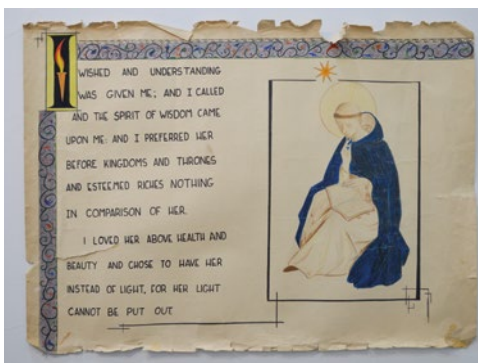 I WISHED AND UNDERSTANDING
WAS GIVEN ME; AND I CALLED
AND THE SPIRIT OF WISDOM CAME
UPON ME: AND I PREFERRED HER
BEFORE KINGDOMS AND THRONES
AND ESTEEMED RICHES NOTHING
IN COMPARISON OF HER.
I LOVED HER ABOVE HEALTH AND
BEAUTY AND CHOSE TO HAVE HER
INSTEAD OF LIGHT, FOR HER LIGHT
CANNOT BE PUT OUT.